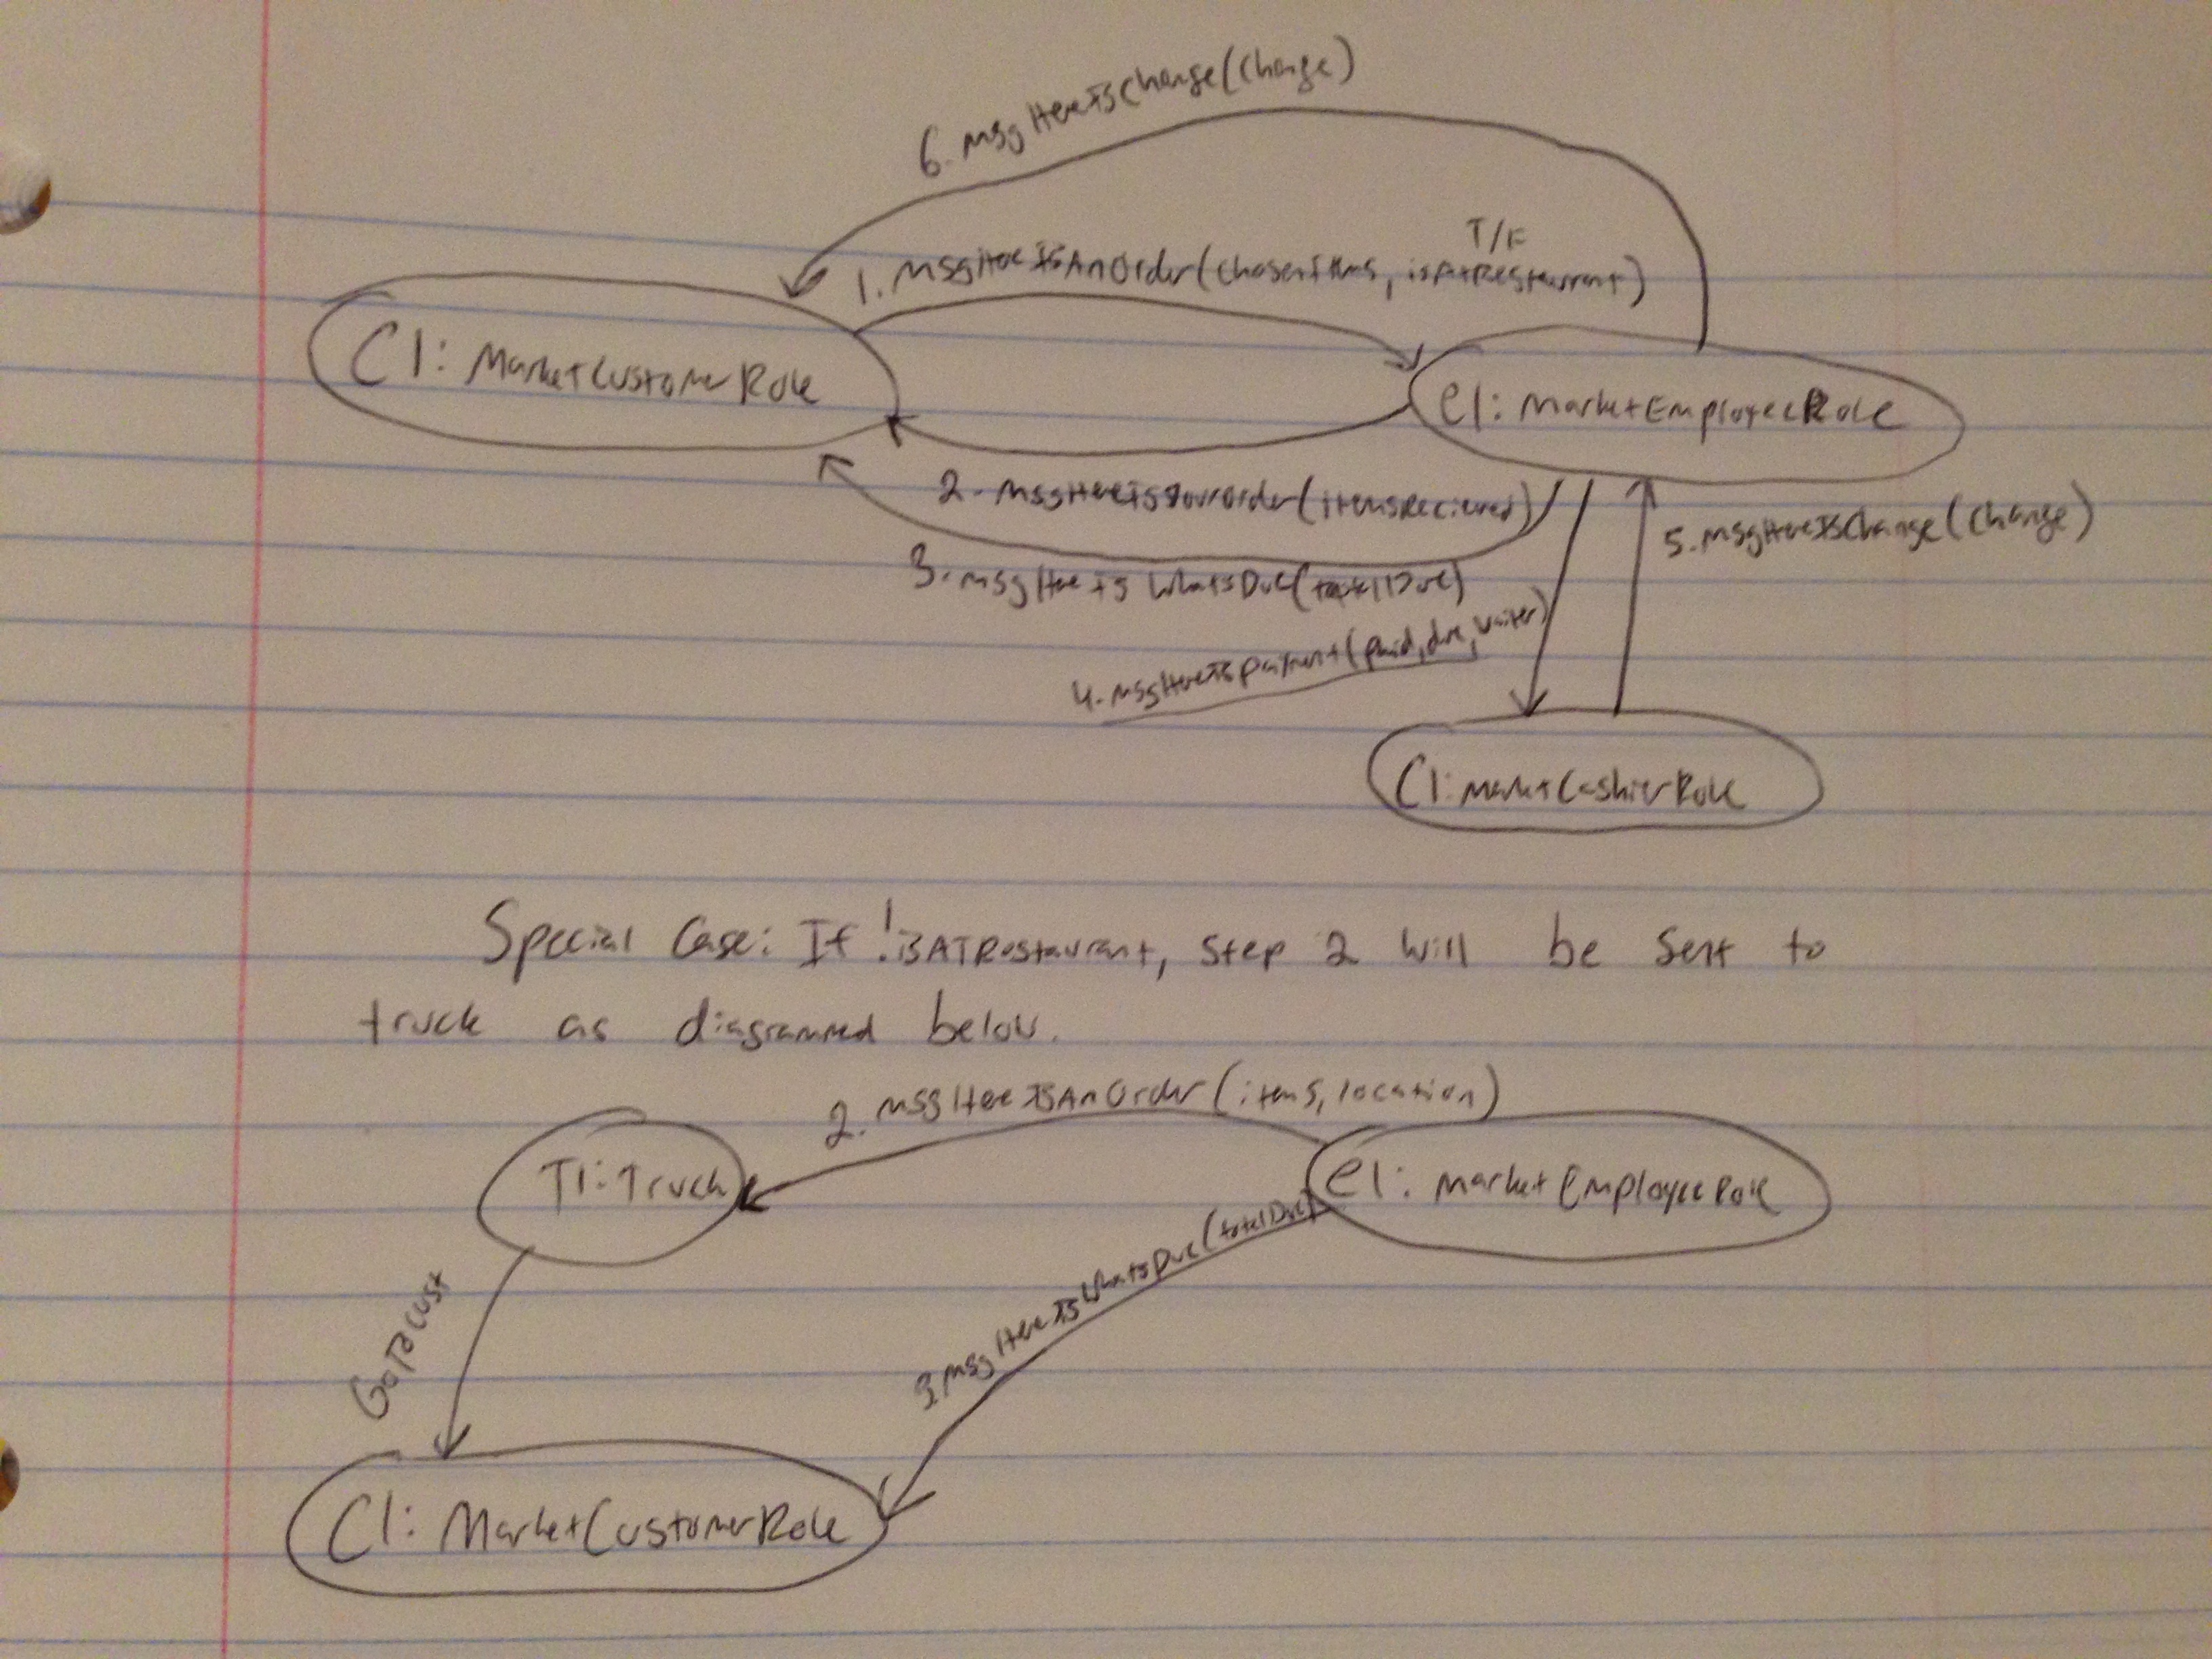 6. msgHereIsChange(Change)
T/F
1. MsgHereIsAnOrder(ChosenItems, isAtRestaurant)
C1: MarketCustomerRole
e1: MarketEmployeeRole
2. MsgHereIsYourOrder(itemsRecieved)
5. MsgHereIsChange(Change)
3. msgHereIsWhatsDue(totalDue)
4. MsgHereIsPayment(paid, due, waiter)
C1: MarketCashierRole
Special Case: If !isATRestaurant, Step 2 will be sent to
truck as diagrammed below.
2. MsgHereIsAnOrder(items, location)
T1: Truck
e1: MarketEmployeeRole
GoToCust
3. MsgHereIsWhatsDue(totalDue)
C1: MarketCustomerRole